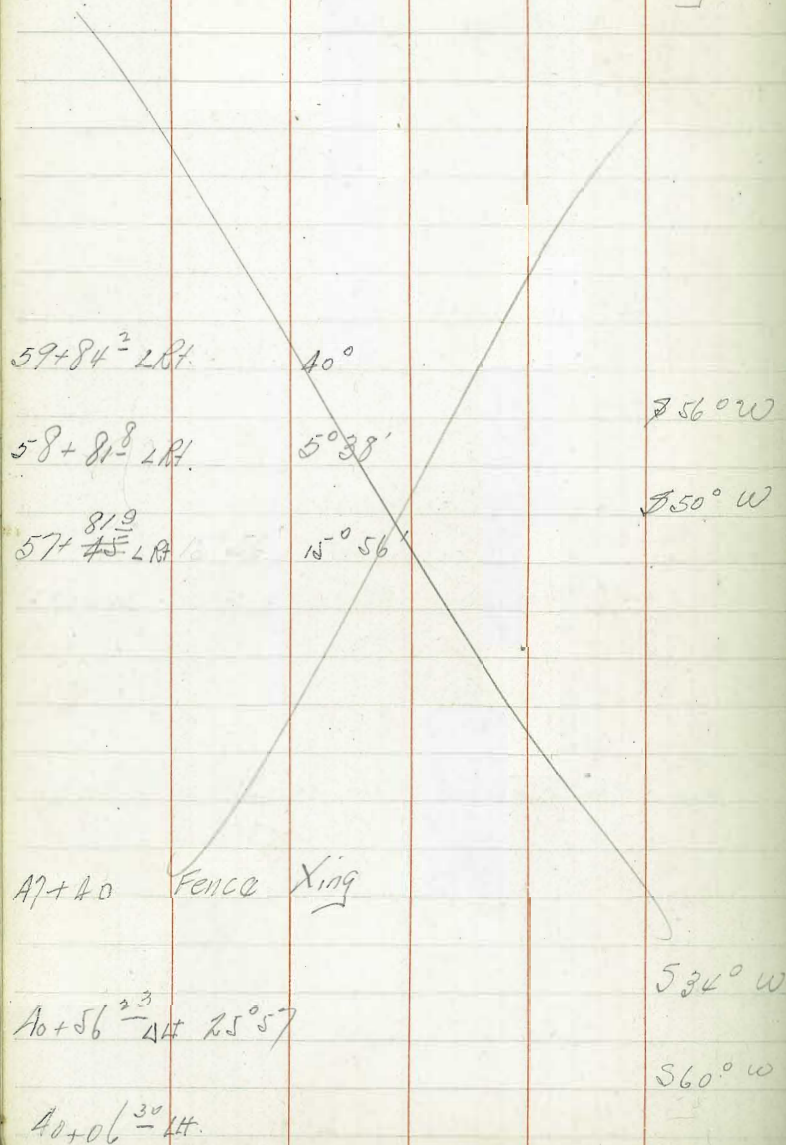 59+84 2 ∠Rt. 40°
S 56° W
58+81 8 ∠Rt. 5°38'
S 50° W
57+ 81 9 ∠Rt 15°56'
47+40 Fence Xing
S 34° W
40+56 23 ∠Lt 25°57
S60° W
40+06 30 Lt.